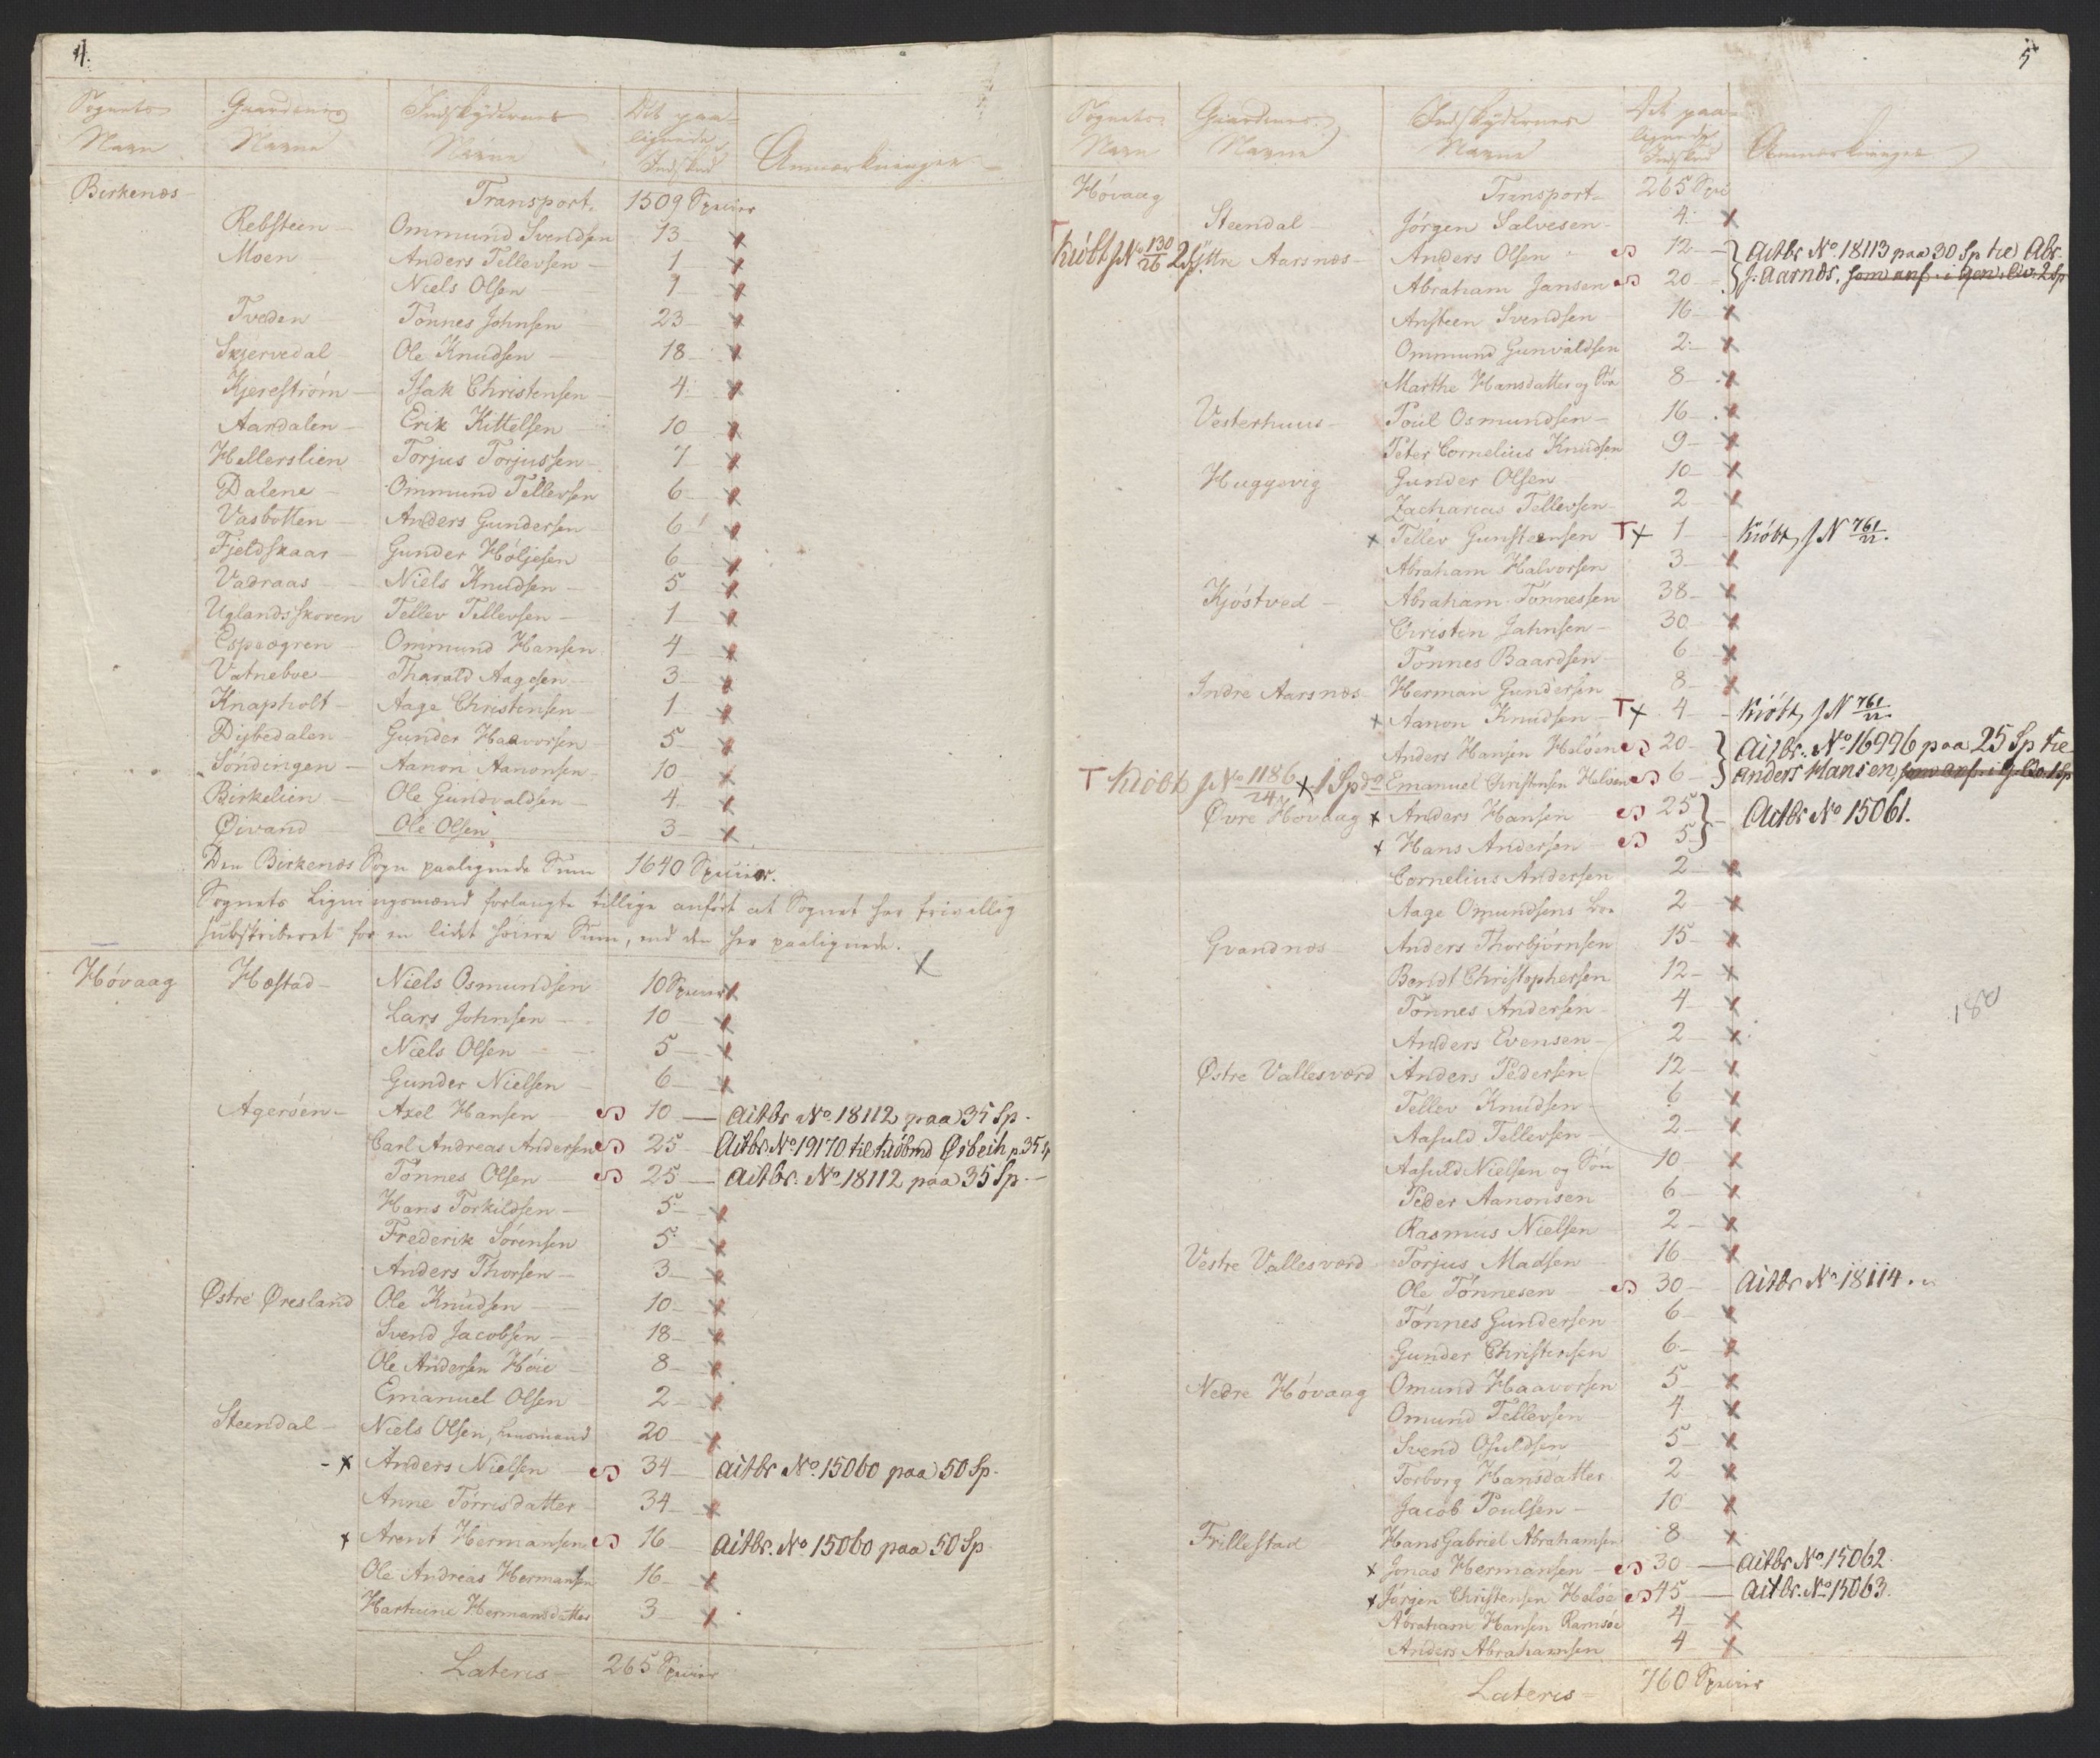 4.
Sognets Gaardenes Indskydernes Det paa-
Navn Navne Navne lignede
Indskud Anmærkninger
Birkenæs Transport 1509 Specier
Rebsteen Ommund Svendsen 13
Moen Anders Tellevsen 1
Niels Olsen 1
Tveden Tönnes Johnsen 23
Skjervedal Ole Knudsen 18
Kjerestrøm Isak Christensen 4
Aardalen Erik Kittelsen 10
Hellerslien Torjus Torjussen 7
Dalene Ommund Tellevsen 6
Vasbotten Anders Gundersen 6
Fjeldskaar Gunder Höljesen 6
Vadraas Niels Knudsen 5
Uglandsskoven Tellev Tellevsen 1
Espeögren Ommund Hansen 4
Vatneboe Tharald Aagesen 3
Knapholt Aage Christensen 1
Dybedalen Gunder Haavorsen 5
Söndingen Aanon Aanonsen 10
Birkelien Ole Gundvaldsen 4
Øivand Ole Olsen 3
Den Birkenæs Sogn paalignede Sum 1640 Specier.
Sognets Ligningsmænd forlangte tillige anført at Sognet har frivillig
subskriberet for en lidet høiere Sum, end den her paalignede.
Hövaag Hæstad Niels Osmundsen 10 Specier
Lars Johnsen 10
Niels Olsen 5
Gunder Nielsen 6
Ageröen Axel Hansen 10 Actbr No. 18112 paa 35 Sp.
Carl Andreas Andersen 25 Actbr No 19170 til Kiöbmd p. 35
Tönnes Olsen 25 Actbr. No 18112 paa 35 Sp.
Hans Torkildsen 5
Frederik Sörensen 5
Anders Thorsen 3
Østre Øresland Ole Knudsen 10
Svend Jacobsen 18
Ole Andersen Höie 8
Emanuel Olsen 2
Steendal Niels Olsen, Huusmand 20
x Anders Nielsen 34 Actbr No. 15060 paa 50 Sp.
Anne Torrisdatter 34
x Arent Hermansen 16 Actbr. No 15060 paa 50 Sp
Ole Andreas Hermansen 16
Hartvine Hermansdatter 3
Lateris 265 Specier
5
Sognets Gaardenes Indskydernes Det paa-
Navn Navne Navne lignede
Indskud Anmærkninger
Hövaag Transport 265 Spec
Steendal Jörgen Salvesen 4
T Kiöbt J No 130/26 2 Sp Yttre Aarsnæs Anders Olsen 12 Actbr No 18113 paa 30 Sp til Abr.
Abraham Jansen 20 J. Aarnæs, som anf. i
Ansteen Svendsen 16
Ommund Gunvaldsen 2
Marthe Hansdatter og Sön 8
Vesterhuus Poul Osmundsen 16
Peter Cornelius Knudsen 9
Huggevig Gunder Olsen 10
Zacharias Tellevsen 2
x Tellev Gunstensen T x 1 Kiöbt J N 761/22.
Abraham Halvorsen 3
Kjöstved Abraham Tönnessen 38
Christen Jahnsen 30
Tönnes Baardsen 6
Indre Aarsnæs Herman Gundersen 8
x Aanon Knudsen T x 4 Kiöbt J N 761/22.
Anders Hansen Helöen 20 Actbr. No 16996 paa 25 Sp til
T Kiöbt J No 1186/24 x 1 Sp do Emanuel Christensen Helöen 6 Anders Hansen, som anf. i
Øvre Hövaag x Anders Hansen 25 Actbr No 15061.
x Hans Andersen 5
Cornelius Andersen 2
Aage Omundsens 2
Grandnæs Anders Thorbjörnsen 15
Berndt Christophersen 12
Tönnes Andersen 4
180
Anders Evensen 2
Østre Vallesværd Anders Pedersen 12
Tellev Knudsen 6
Aasuld Tellevsen 2
Aasuld Nielsen og Sön 10
Peder Aanonsen 6
Rasmus Nielsen 2
Vestre Vallesværd Torjus Madsen 16
Ole Tönnesen 30 Actbr No 18114.
Tönnes Gundersen 6
Gunder Christensen 6
Nedre Hövaag Omund Haavorsen 5
Omund Tellevsen 4
Svend Osuldsen 5
Torborg Hansdatter 2
Jacob Poulsen 10
Frillestad Hans Gabriel Abrahamsen 8
x Jonas Hermansen 30 Actbr No 15062.
x Jörgen Christensen Helöe 45 Actbr. No 15063.
Abraham Hansen Ramsöe 4
Anders Abrahamsen 4
Lateris 760 Specier